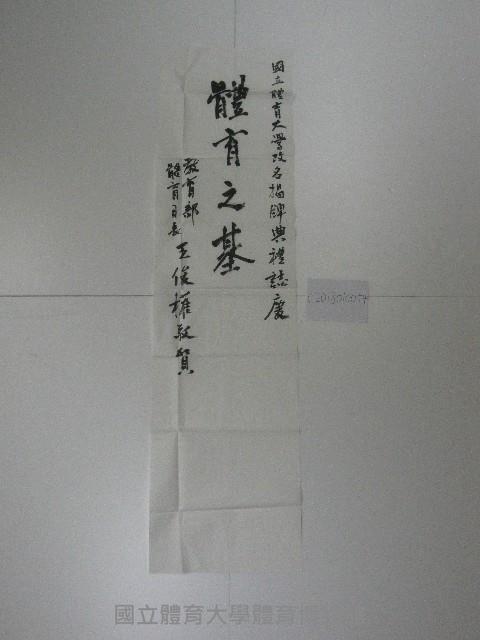 國立體育大學改名揭牌典禮誌慶
體育之基
教育部
體育司長
王俊權敬賀
國立體育大學體育